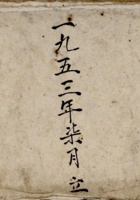 一九五三年柒月立